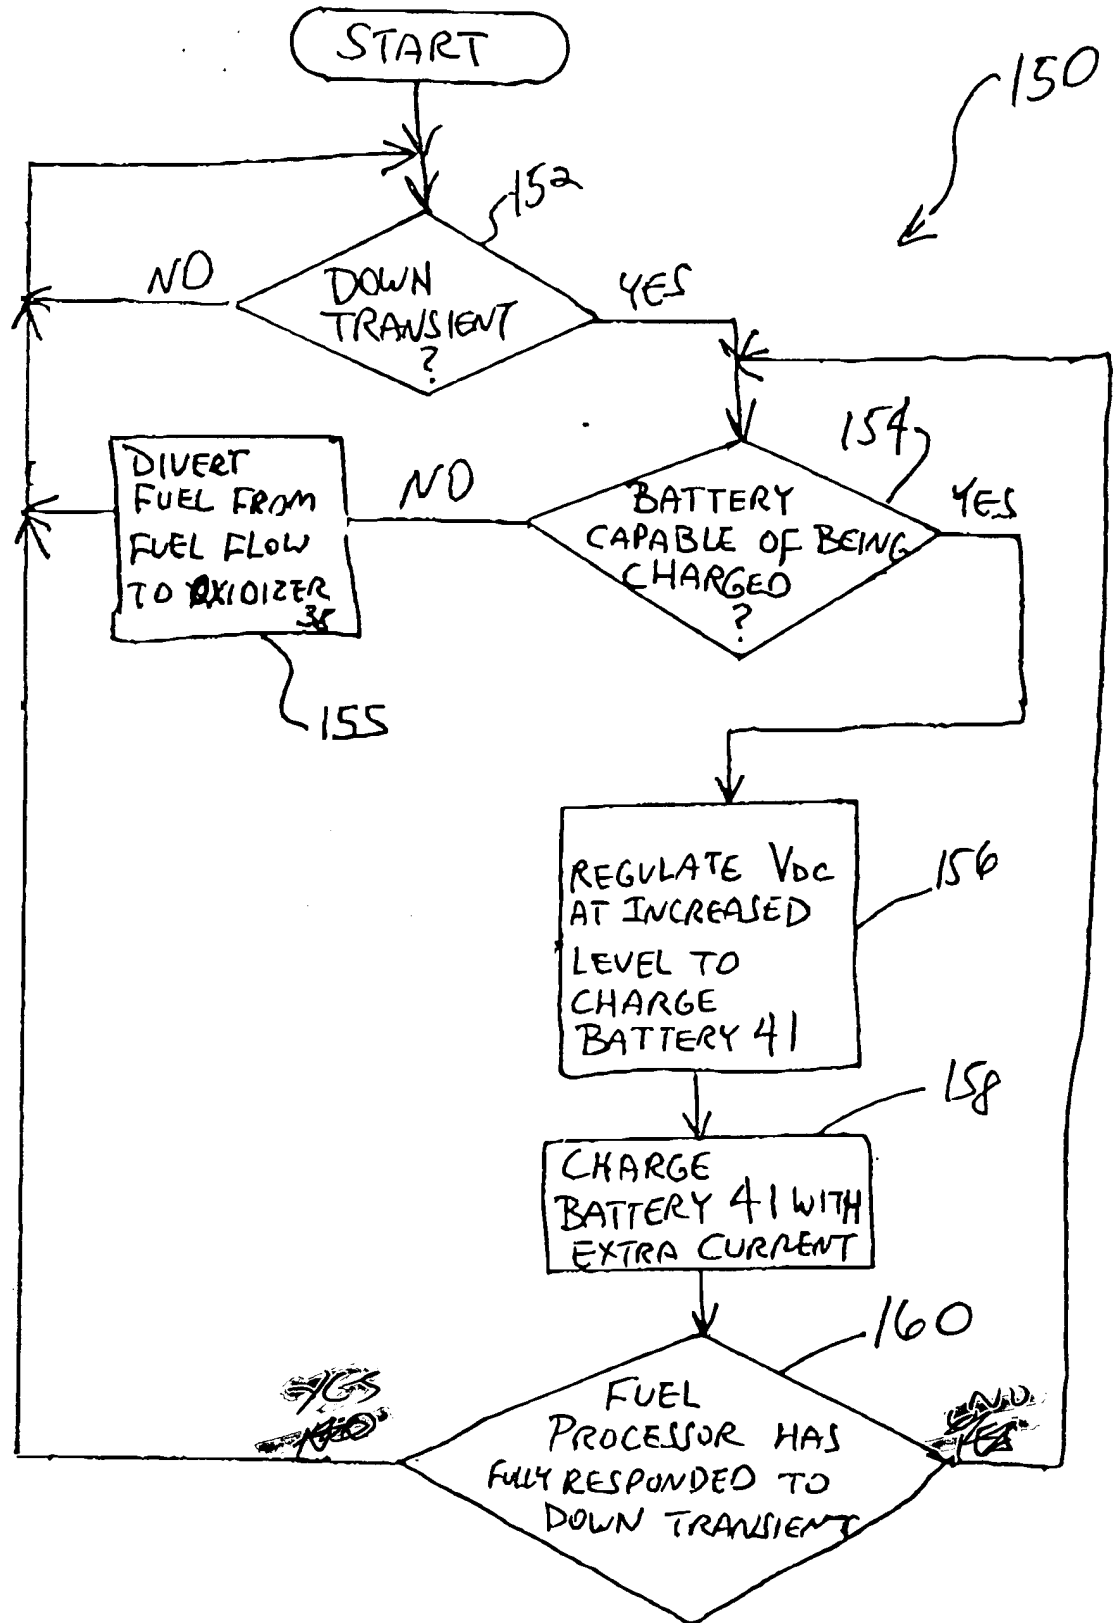 START
150
152
NO
DOWN
TRANSIENT
?
YES
154
DIVERT
FUEL FROM
FUEL FLOW
TO OXIDIZER
38
NO
BATTERY
CAPABLE OF BEING
CHARGED
?
YES
155
REGULATE VDC
AT INCREASED
LEVEL TO
CHARGE
BATTERY 41
156
158
CHARGE
BATTERY 41 WITH
EXTRA CURRENT
160
YES
NO
FUEL
PROCESSOR HAS
FULLY RESPONDED TO
DOWN TRANSIENT
YES